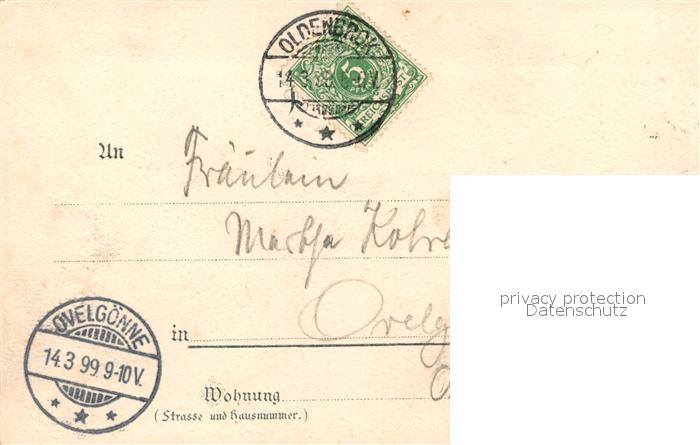 OLDENBROK
14.3.99. V.
5
REICHSPOST
An
Fräulein
Martha
in
OVELGÖNNE
14.3.99.9-10V.
Wohnung
(Strasse und Hausnummer.)
privacy protection
Datenschutz